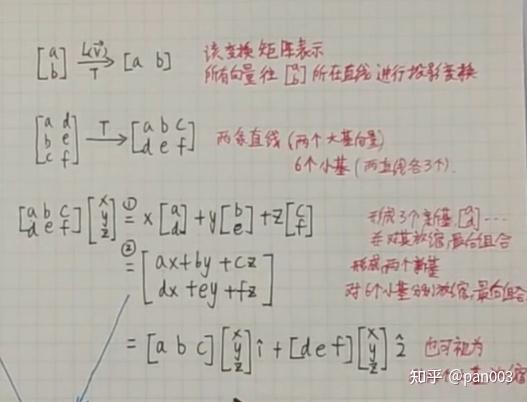 [a b] L(v⃗) → T [a b] 该变换矩阵表示
所有向量往 [a b] 所在直线进行投影变换
[a d b e c f] T → [a b c d e f] 两条直线 (两个大基向量)
6个小基 (两直线各3个).
[a b c d e f] [x y z] ①= x [a d] + y [b e] + z [c f] 形成3个新基 [a d] ...
并对其放缩,最后组合
②= [ax+by+cz dx+ey+fz] 形成两个新基
对6个小基分别放缩,最后组合
= [a b c] [x y z] î + [d e f] [x y z] 2̂ 也可视为
知乎 @pan003